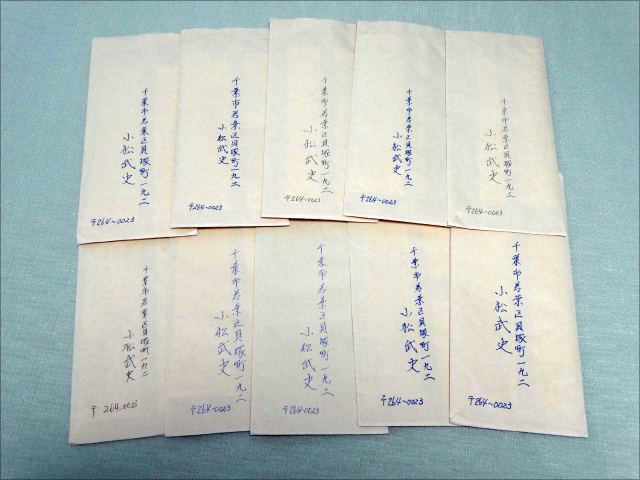 千葉市若葉区貝塚町一九二
小松武史
〒264-0023
千葉市若葉区貝塚町一九二
小松武史
〒264-0023
千葉市若葉区貝塚町一九二
小松武史
〒264-0023
千葉市若葉区貝塚町一九二
小松武史
〒264-0023
千葉市若葉区貝塚町一九二
小松武史
〒264-0023
千葉市若葉区貝塚町一九二
小松武史
〒264-0023
千葉市若葉区貝塚町一九二
小松武史
〒264-0023
千葉市若葉区貝塚町一九二
小松武史
〒264-0023
千葉市若葉区貝塚町一九二
小松武史
〒264-0023
千葉市若葉区貝塚町一九二
小松武史
〒264-0023